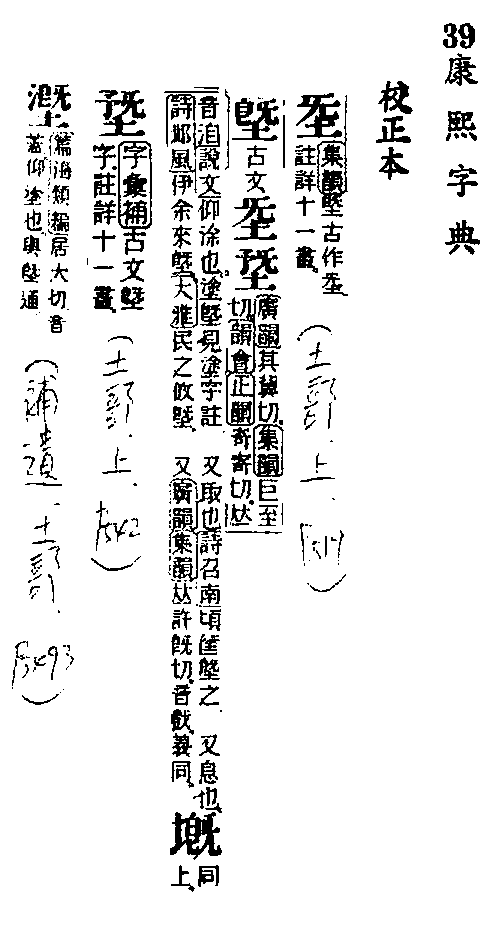 39康熙字典
校正本
𡊊
集韻墍古作𡊊
註詳十一畫
(土部.上. P519)
墍
古文𡊊𡎺
廣韻其冀切集韻巨至
切韻會正韻奇寄切𠀤
音洎說文仰涂也塗墍見塗字註 又取也詩召南頃筐墍之 又息也
詩邶風伊余來墍大雅民之攸墍 又廣韻集韻𠀤許旣切音戲義同
墍同
上
字彙補古文墍
字註詳十一畫
(土部.上. P542)
篇海類編居大切音
蓋仰塗也與墍通
(補遺.土部. P3493)